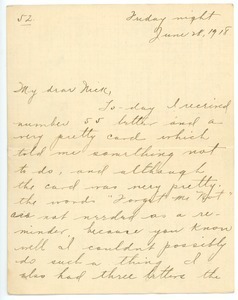 52
Friday night
June 28, 1918
My dear Nick,
To-day I received
number 55 letter and a
very pretty card which
told me something not
to do, and although
the card was very pretty,
the words "Forget Me Not"
are not needed as a re-
minder, because you know
well I couldn't possibly
do such a thing. I
also had three letters the